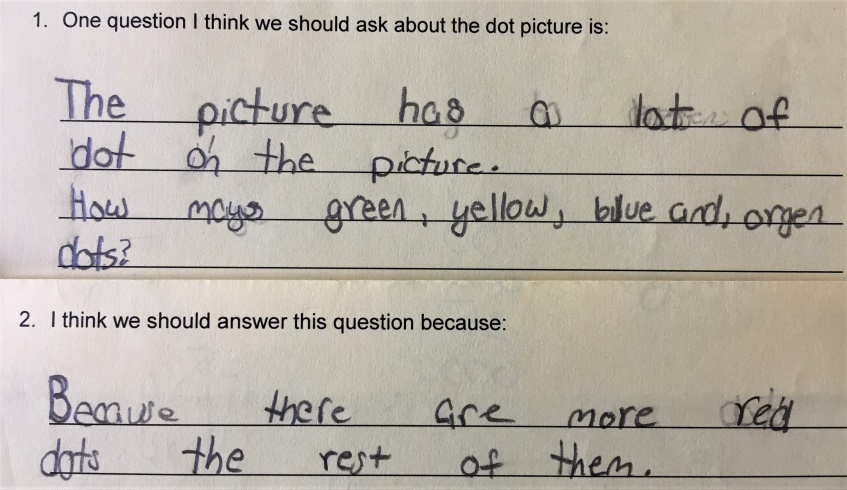 1. One question I think we should ask about the dot picture is:
The picture has a lot of
dot on the picture.
How mays green, yellow, bilue and, orgen
dots?
2. I think we should answer this question because:
Because there are more red
dots the rest of them.